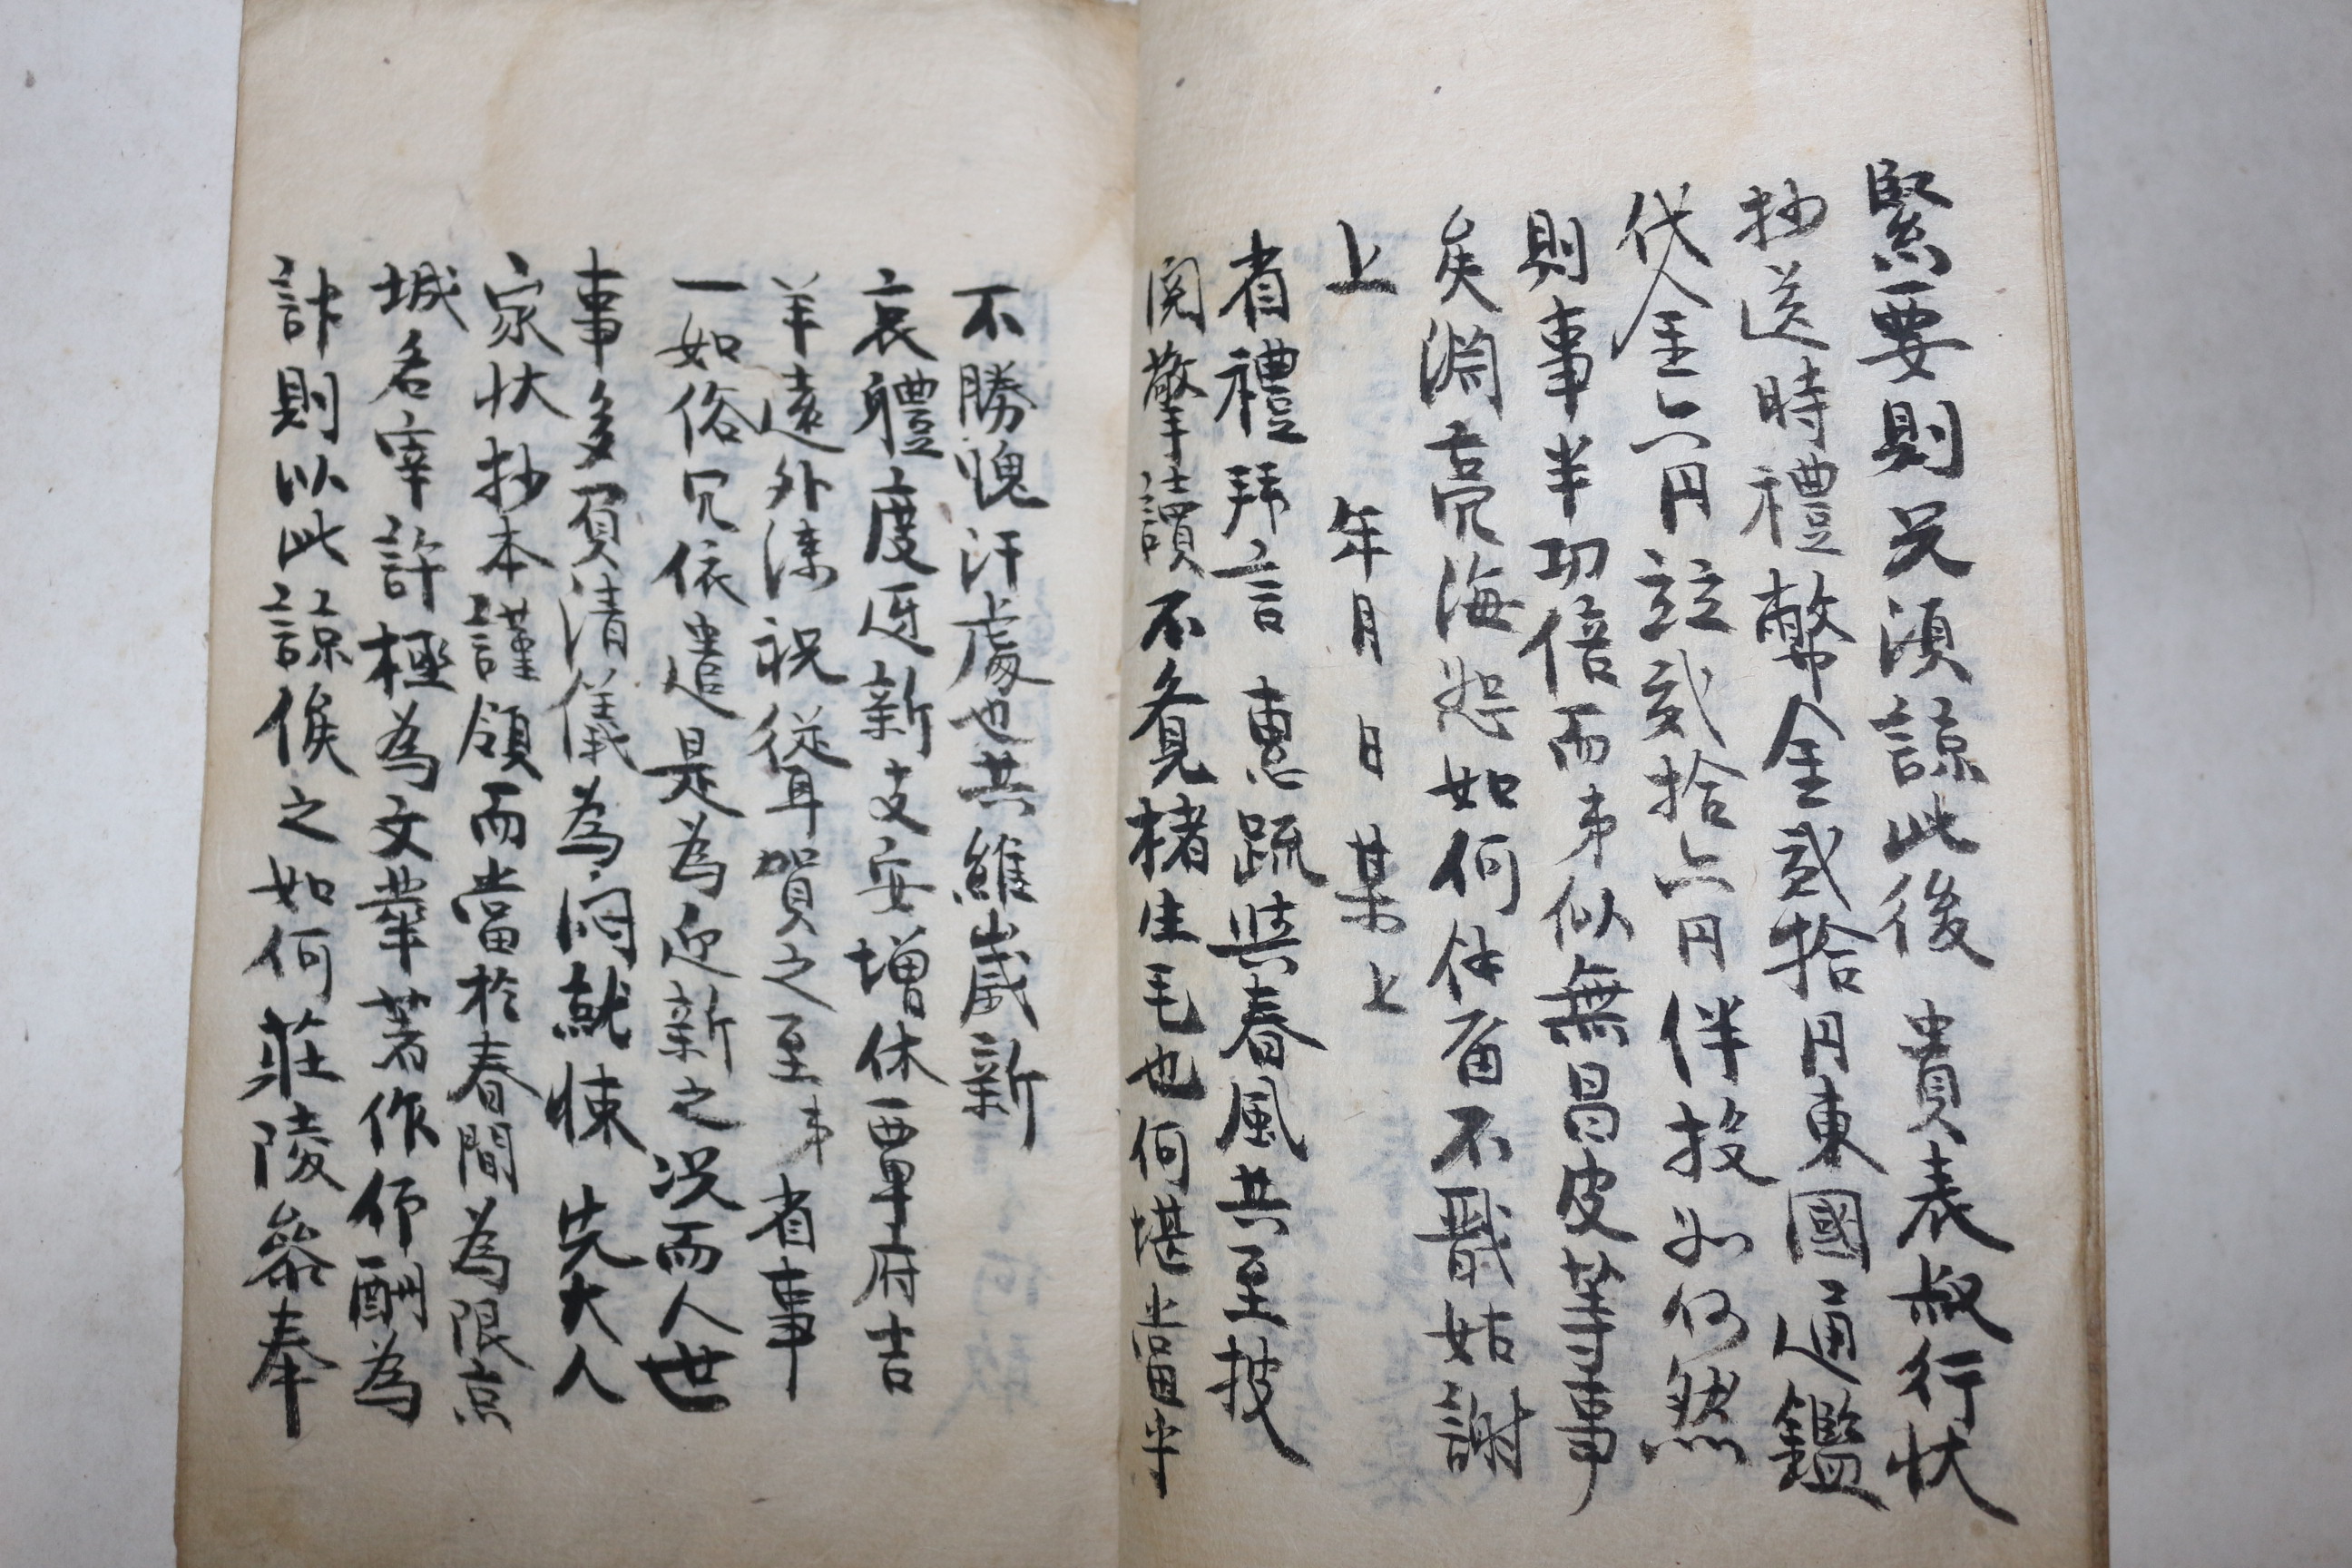 緊要則又須諒此後 貴表叔行狀
抄送時禮幣金貳拾円東國通鑑
代金六円竝貳拾六円伴投如何然
則事半功倍而弟似無冒皮等事
矣淵亮海恕如何餘留不戩姑謝
上 年月日某上
省禮拜言 惠疏與春風共至披
閱擎讀不覺楮生毛也何堪當乎
不勝愧汗處也共維歲新
哀禮度迓新支安增休覃府吉
羊遠外溸祝從耳賀之至弟省事
一如俗冗依遣是為迎新之況而人世
事多負清儀為悶就悚 先大人
家狀抄本謹領而當於春間為限京
城名宰許極為文華著作師酬為
計則以此諒俟之如何莊陵參奉